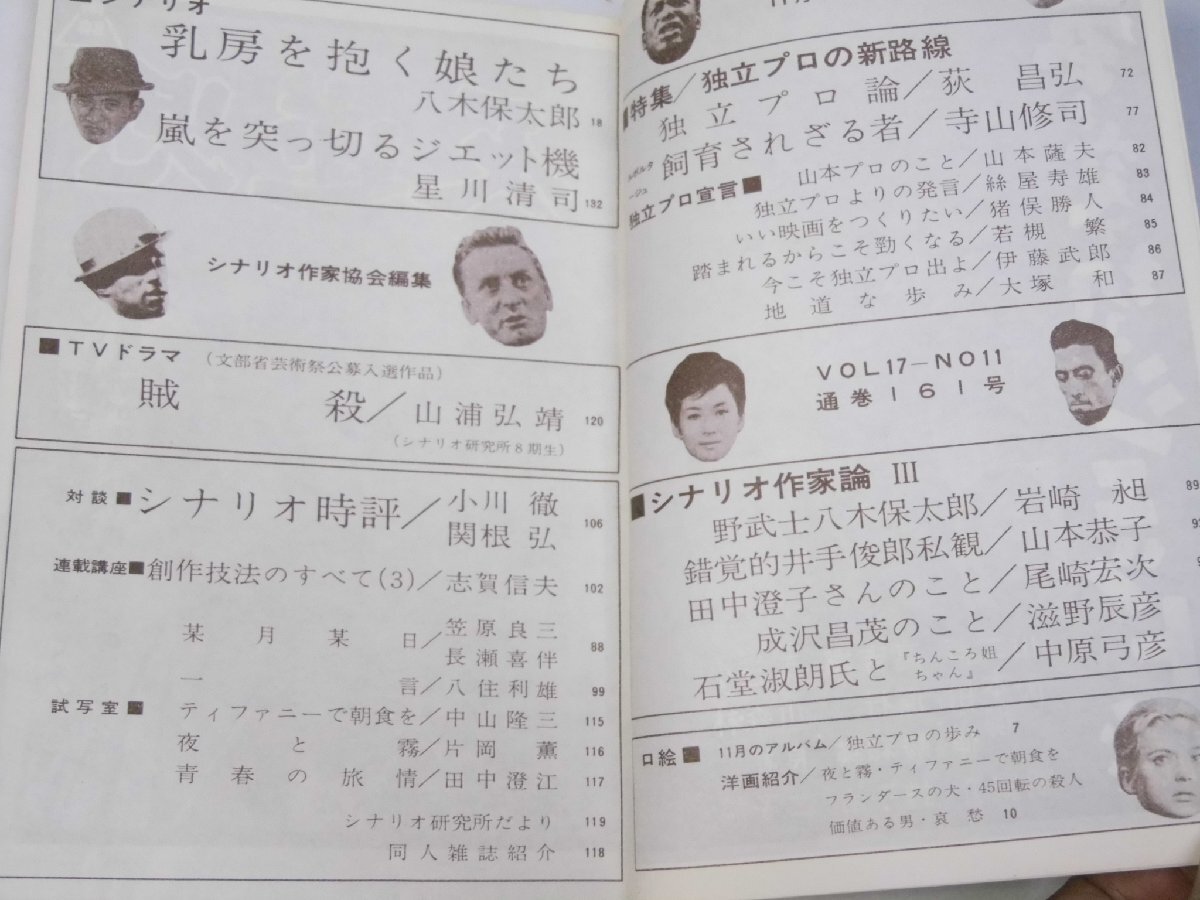 ■シナリオ
乳房を抱く娘たち
八木保太郎 18
嵐を突っ切るジエット機
星川清司 132
シナリオ作家協会編集
■TVドラマ （文部省芸術祭公募入選作品）
賊殺／山浦弘靖 120
（シナリオ研究所8期生）
対談■シナリオ時評／小川徹
関根弘 106
連載講座■創作技法のすべて(3)／志賀信夫 102
某月某日／笠原良三
長瀬喜伴 88
一言／八住利雄 99
試写室■ティファニーで朝食を／中山隆三 115
夜と霧／片岡薫 116
青春の旅情／田中澄江 117
シナリオ研究所だより 119
同人雑誌紹介 118
11月
■特集／独立プロの新路線
独立プロ論／荻昌弘 72
ルポルタージュ 飼育されざる者／寺山修司 77
独立プロ宣言■
山本プロのこと／山本薩夫 82
独立プロよりの発言／絲屋寿雄 83
いい映画をつくりたい／猪俣勝人 84
踏まれるからこそ勁くなる／若槻繁 85
今こそ独立プロ出よ／伊藤武郎 86
地道な歩み／大塚和 87
VOL17－NO11
通巻161号
■シナリオ作家論 III
野武士八木保太郎／岩崎昶 89
錯覚的井手俊郎私観／山本恭子
田中澄子さんのこと／尾崎宏次
成沢昌茂のこと／滋野辰彦
石堂淑朗氏と『ちんころ姐ちゃん』／中原弓彦
口絵■ 11月のアルバム／独立プロの歩み 7
洋画紹介／夜と霧・ティファニーで朝食を
フランダースの犬・45回転の殺人
価値ある男・哀愁 10